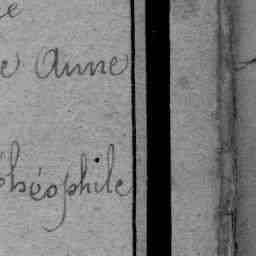 e
e Anne
théophile